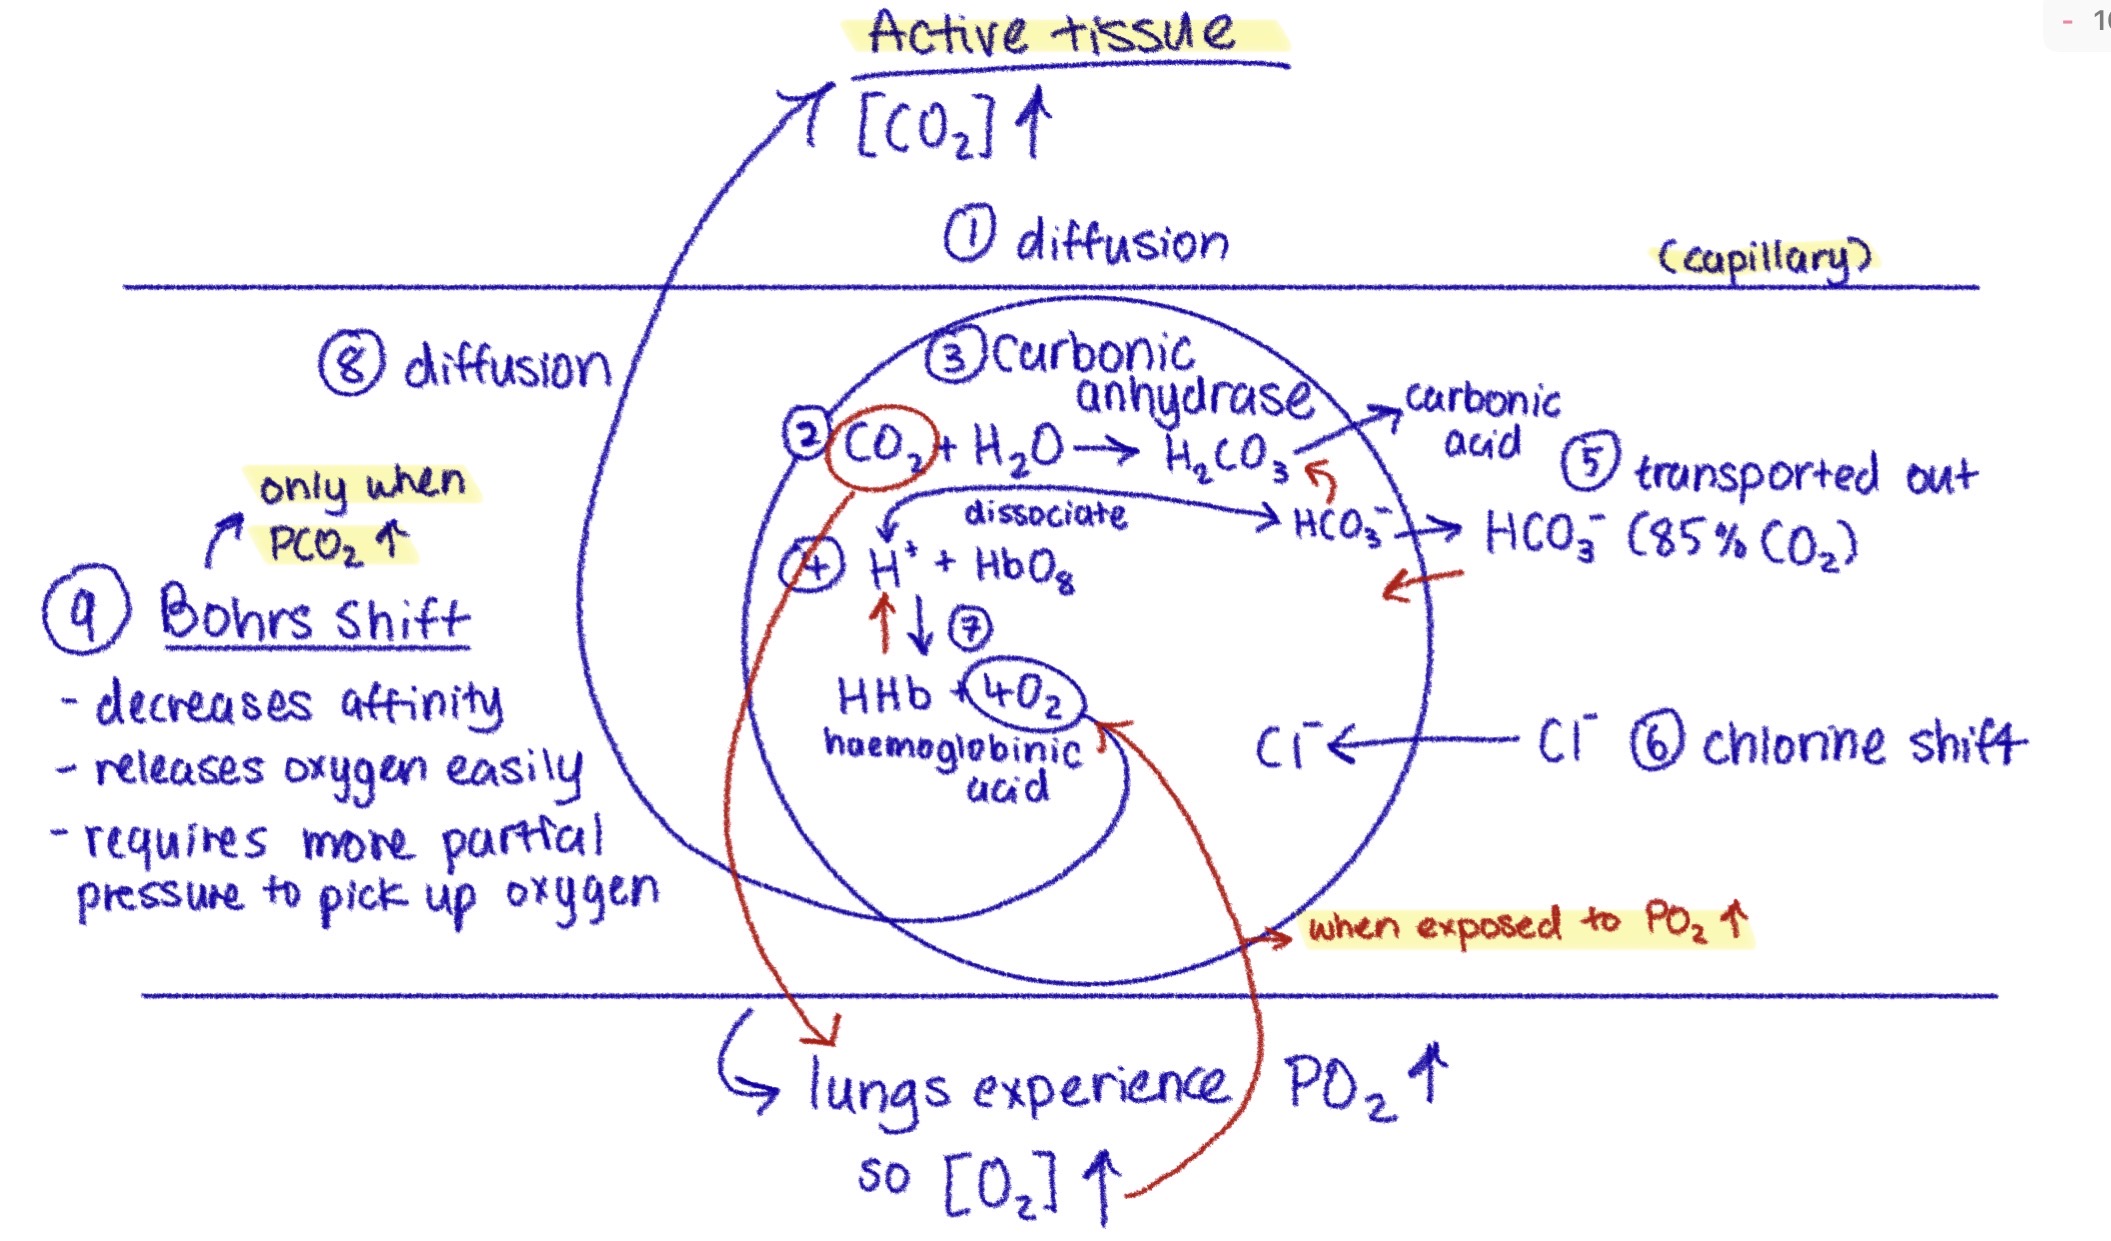 Active tissue
[CO₂] ↑
① diffusion
(capillary)
⑧ diffusion
③ Carbonic
anhydrase
② CO₂ + H₂O → H₂CO₃
carbonic
acid
⑤ transported out
dissociate
HCO₃⁻ → HCO₃⁻ (85% CO₂)
④ H⁺ + HbO₈
↓ ⑦
HHb + 4O₂
haemoglobinic
acid
Cl⁻ ← Cl⁻ ⑥ chlorine shift
only when
PCO₂ ↑
⑨ Bohrs Shift
- decreases affinity
- releases oxygen easily
- requires more partial
pressure to pick up oxygen
when exposed to PO₂ ↑
lungs experience PO₂ ↑
so [O₂] ↑